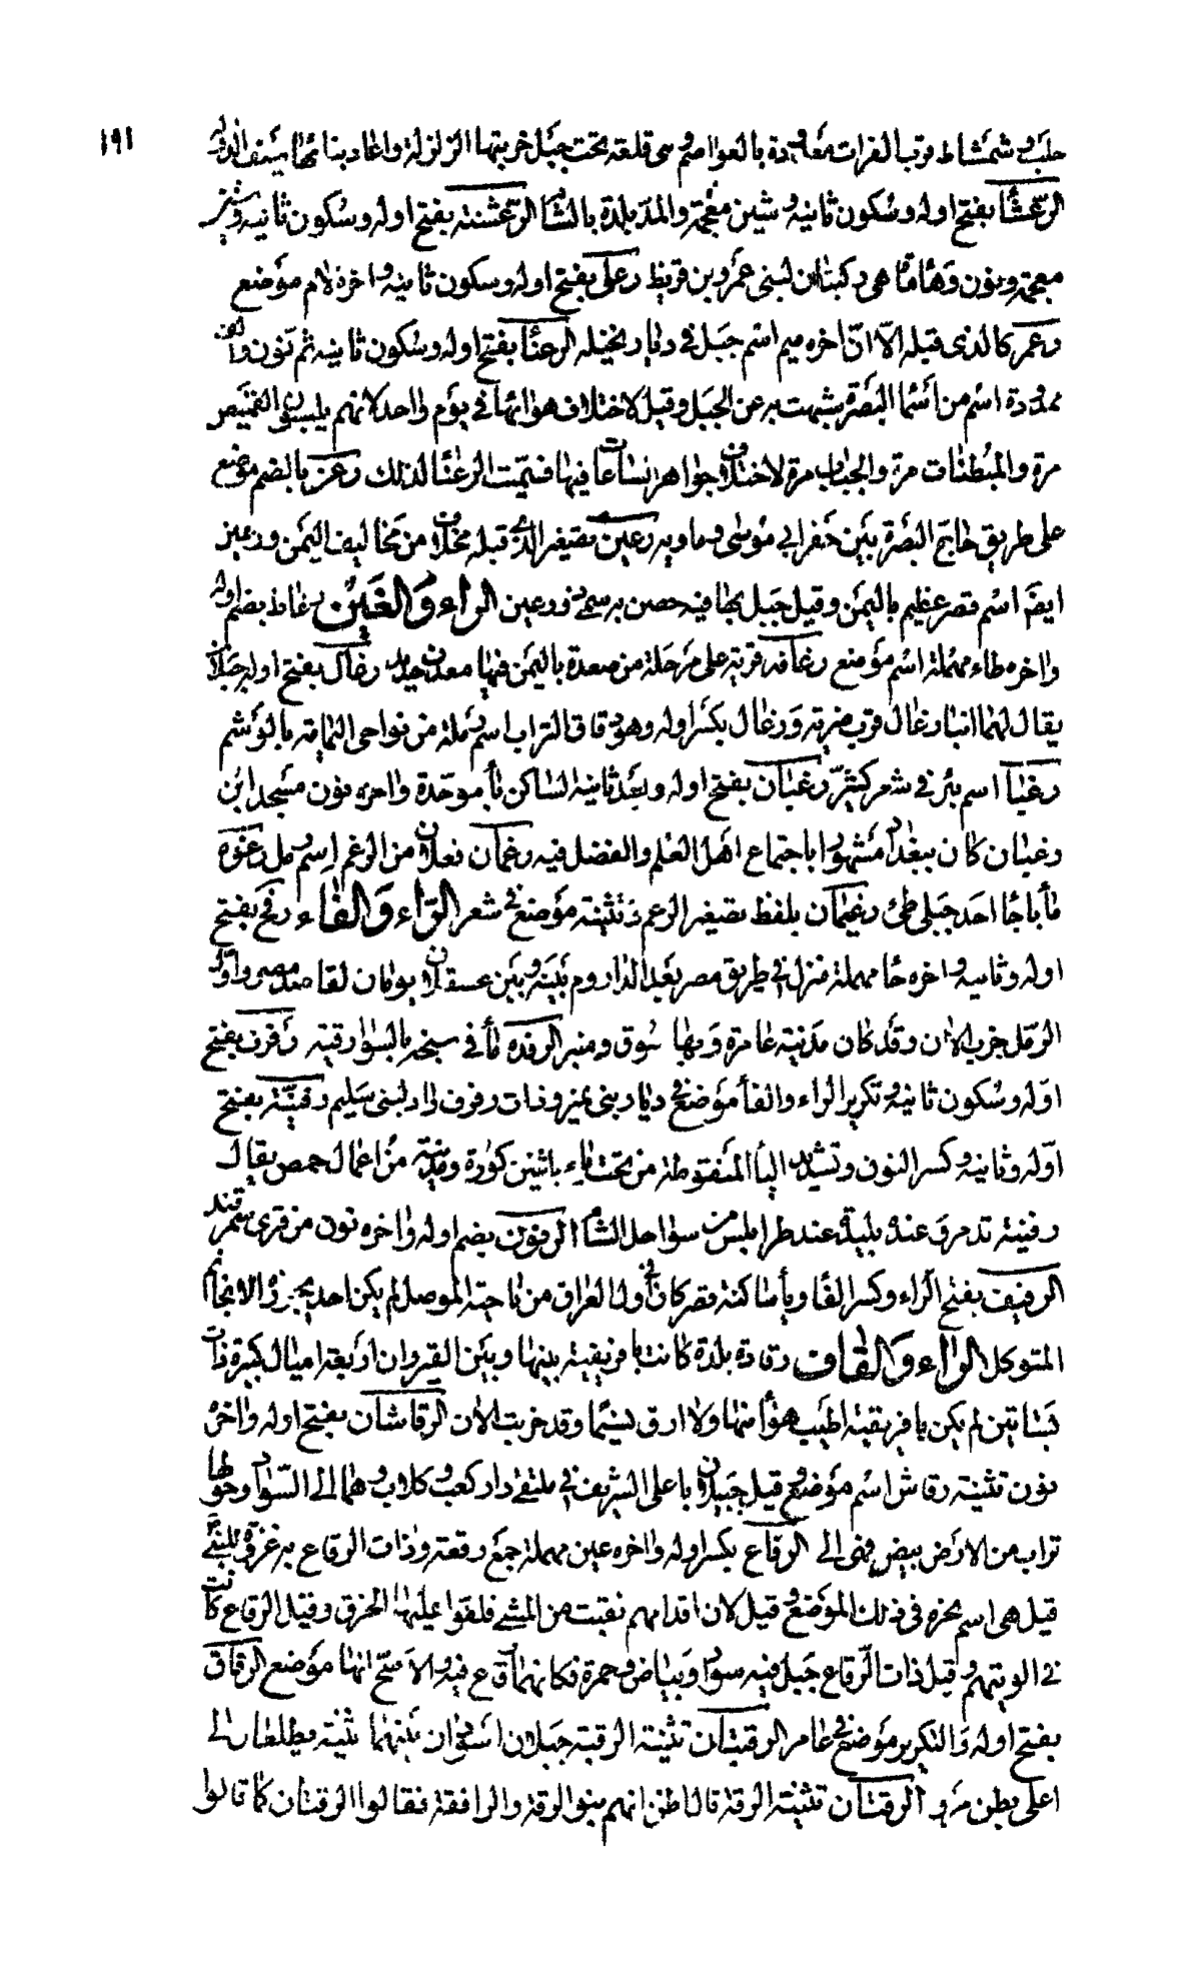 ١٩١
حلب وشمشاط قرب الفرات معدودة بالعواصم وهى قلعة تحت جبل خربتها الزلزلة واعاد بنائها سيف الدولة
الرعشا بفتح اوله وسكون ثانيه وشين معجمة والمد بلدة بالشام الرعشنة بفتح اوله وسكون ثانيه وشين
معجمة ونون وها ما هى ركبتان لبنى عمرو بن قريظ رعل بفتح اوله وسكون ثانيه واخره لام موضع
رعم كالذى قبله الا ان اخره ميم اسم جبل فى ديار بجيلة الرعنا بفتح اوله وسكون ثانيه ثم نون والف
ممدودة اسم من اسما البصرة شبهت برعن الجبل وقيل لاختلاف هوائها فى يوم واحد لانهم يلبسون القميص
مرة والمبطنات مرة والجباب مرة لاختلاف جواهر الساعات فيها فسميت الرعنا لذلك رعن بالضم موضع
على طريق حاج البصرة بين حفر ابى موسى وماويه رعين تصغير الذى قبله مخلاف من مخاليف اليمن ورعين
ايضا اسم قصر عظيم باليمن وقيل جبل بها فيه حصن به سمى ذو رعين الراء والغين رغاط بضم اوله
واخره طاء مهملة اسم موضع رغافه قرية على مرحلة من صعدة باليمن فيها معدن حديد رغال بفتح اوله جبلان
يقال لهما ابنا رغال قرب ضرية ورغال بكسر اوله وهو دقاق التراب اسم رملة من نواحى اليمامة بالوشم
رغبا اسم بئر فى شعر كثير رغبان بفتح اوله وبعد ثانيه الساكن با موحدة واخره نون مسجد ابن
رغبان كان ببغداد مشهورا باجتماع اهل العلم والفضل فيه رغمان فعلان من الرغم اسم رمل رغوة
ما باجا احد جبلى طى رغيمان بلفظ تصغير الرغم وتثنيته موضع فى شعر الراء والفاء رفح بفتح
اوله وثانيه واخره حا مهملة منزل فى طريق مصر بعد الداروم بينه وبين عسقلان يومان لقاصد مصر واول
الرمل خرب الان وقد كان مدينة عامرة وبها سوق ومنبر الرفده ما فى سبخة بالسوارقية رفرف بفتح
اوله وسكون ثانيه وتكرير الراء والفا موضع فى ديار بنى نمير وذات رفرف واد لبنى سليم رفنية بفتح
اوله وثانيه وكسر النون وتشديد اليا المنقوطة من تحت باثنين كورة ومدينة من اعمال حمص يقال
رفنية تدمر وعنده بليدة عند طرابلس من سواحل الشام الرفون بضم اوله واخره نون من قرى سمرقند
الرفيف بفتح الراء وكسر الفا ويا ساكنة قصر كان فى اول العراق من ناحية الموصل لم يكن احد يجوزه الا بخاتم
المتوكل الراء والقاف رقادة بلدة كانت بافريقية بينها وبين القيروان اربعة اميال كبيرة ذات
بساتين لم يكن بافريقية اطيب هوا منها ولا ارق نسيما وقد خربت الان الرقاشان بفتح اوله واخره
نون تثنية رقاش اسم موضع وقيل جبلان باعلى الشريف فى ملتقى دار كعب وكلاب وهما الى السواد وحولهما
تراب من الارض بيض فهى الى الرقاع بكسر اوله واخره عين مهملة جمع رقعة وذات الرقاع به غزوة للنبى
قيل هى اسم شجرة فى ذلك الموضع وقيل لان اقدامهم نقبت من المشى فلفوا عليها الخرق وقيل الرقاع كانت
فى الويتهم وقيل ذات الرقاع جبل فيه سواد وبياض وحمرة فكانها رقاع فيه والاصح انها موضع الرقاق
بفتح اوله والتكرير موضع فى عامر الرقبتان تثنية الرقبة جبلان اسودان بينهما ثنية يطلعان الى
اعلى بطن مر و الرقتان تثنية الرقة قال اظن انهم بنوا الرقة والرافقة فقالوا الرقتان كما قالوا